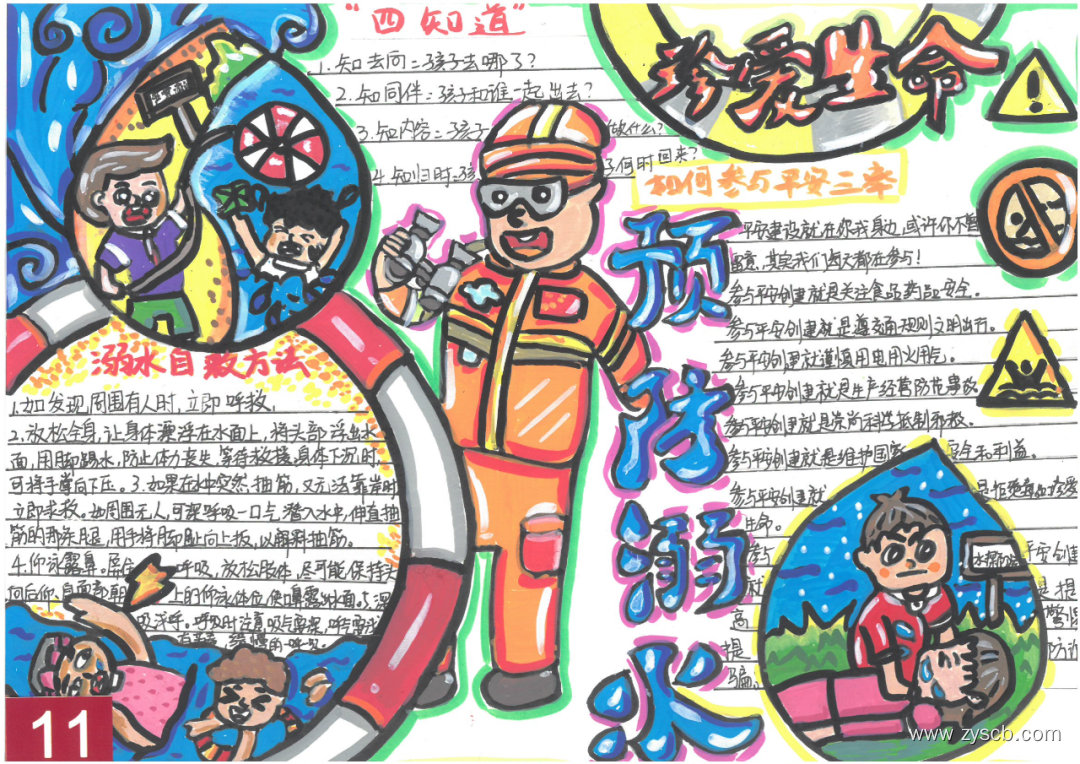 "四知道"
1.知去向:孩子去哪了?
2.知同伴:孩子和谁一起出去?
3.知内容:孩子
做什么?
4.知归时:孩
了何时回来?
珍爱生命
如何参与平安三率
平安建设就在你我身边,或许你不曾
留意,其实我们每天都在参与!
参与平安创建就是关注食品药品安全。
参与平安创建就是遵交通规则文明出行。
参与平安创建就道德用电用火用气。
参与平安创建就是生产经营防范事故
参与平安创建就是崇尚科学抵制邪教。
参与平安创建就是维护国家
安全和利益。
参与平安创建就
生命。
参与
平安创建
就
是提
高
警惕
提
防诈
骗。
预防溺水
溺水自救方法
1.如发现周围有人时,立即呼救,
2.放松全身,让身体漂浮在水面上,将头部浮出水
面,用脚踢水,防止体力丧失,等待救援,身体下沉时,
可将手掌向下压。3.如果在水中突然抽筋,又无法靠岸时
立即求救。如周围无人,可深呼吸一口气潜入水中,伸直抽
筋的那条腿,用手将脚趾向上扳,以解释抽筋。
4.仰泳露鼻。屏住
呼吸,放松肢体,尽可能保持头
向后仰,自面部朝
上的仰泳体位,使口鼻露出水面,
吸浅呼。呼吸时注意
11
www.zyscb.com